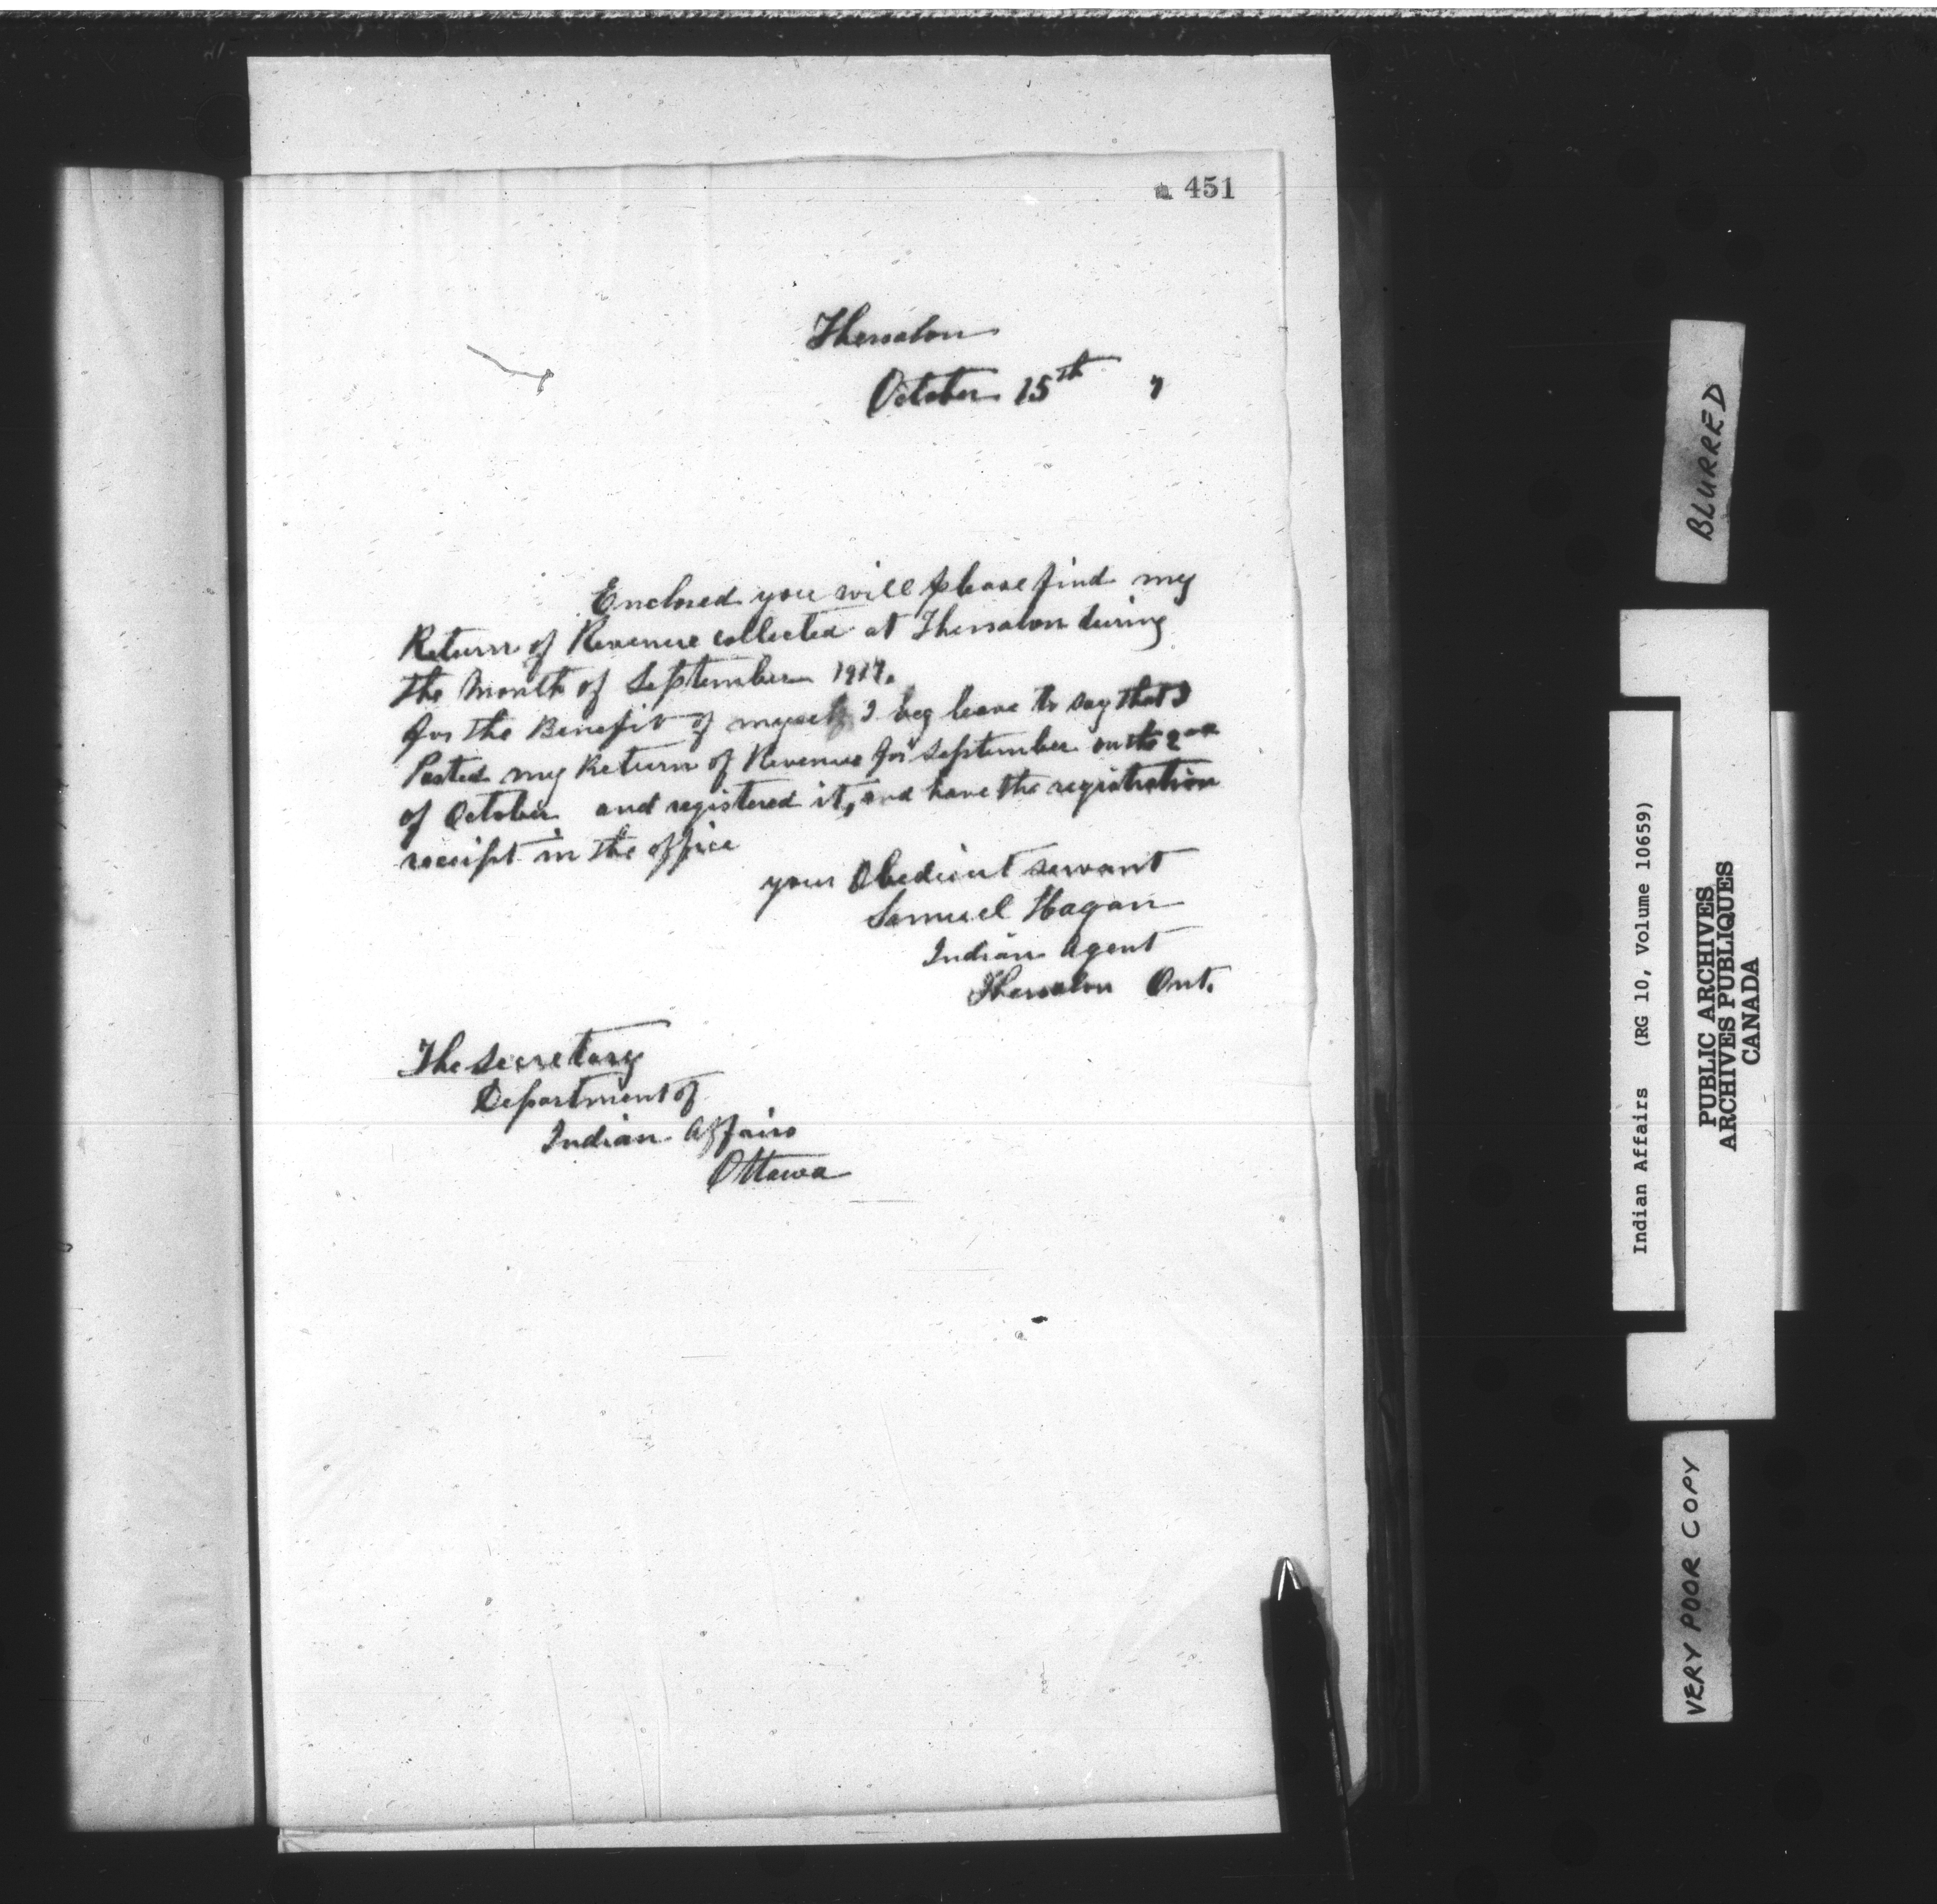 451
Thessalon
October 15th 7
Enclosed you will please find my
Return of Revenue collected at Thessalon during
the Month of September 1917.
for the Benefit of myself I beg leave to say that I
Posted my Return of Revenue for September on the 2nd
of October and registered it, and have the registration
receipt in the office
your Obedient servant
Samuel Hagan
Indian Agent
Thessalon Ont.
The Secretary
Department of
Indian Affairs
Ottawa
BLURRED
Indian Affairs (RG 10, Volume 10659)
PUBLIC ARCHIVES
ARCHIVES PUBLIQUES
CANADA
VERY POOR COPY